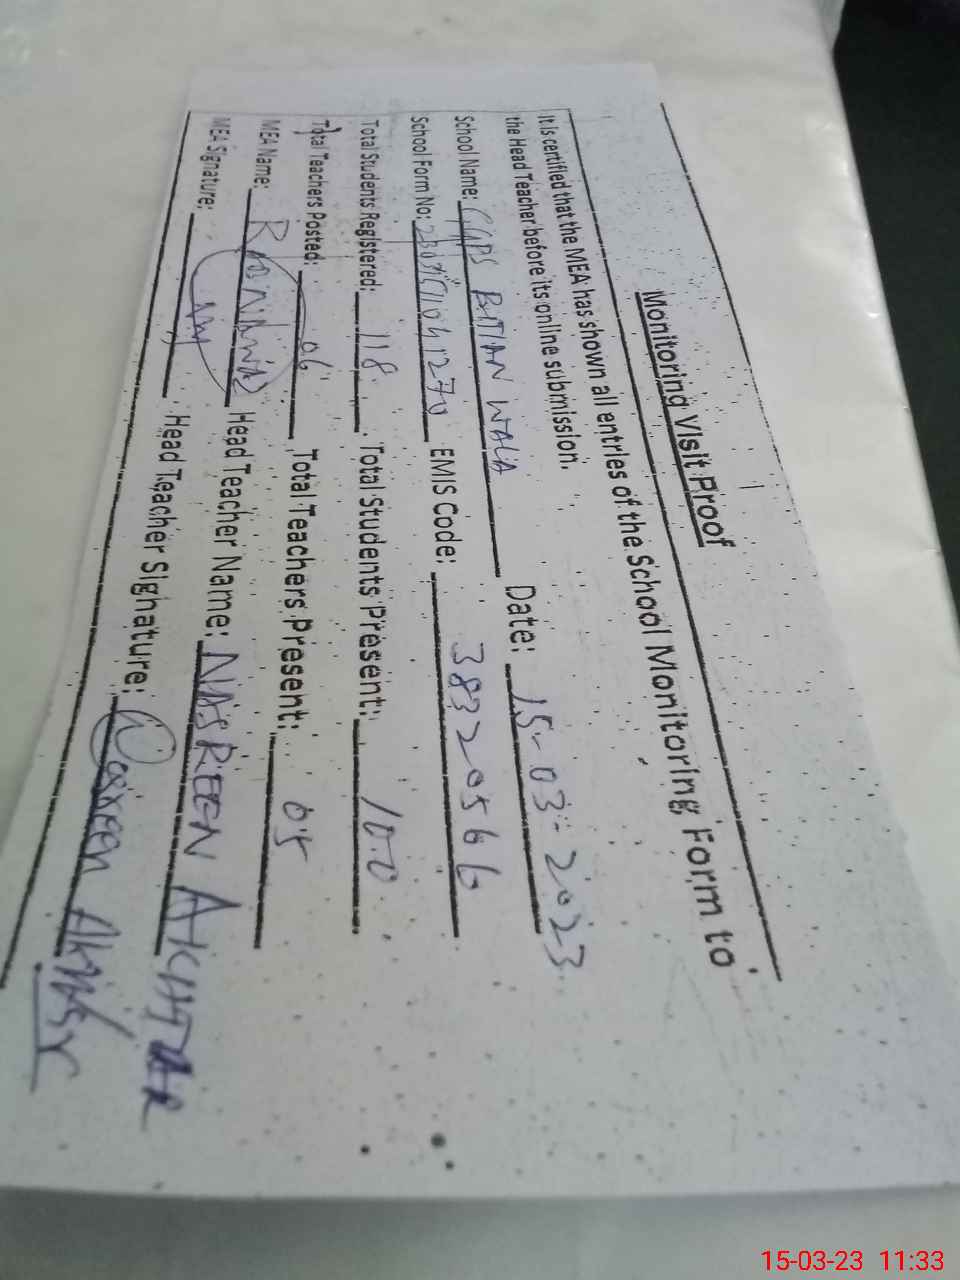 Monitoring Visit Proof
It is certified that the MEA has shown all entries of the School Monitoring Form to
the Head Teacher before its online submission.
School Name: GGPS BATIAN WALA Date: 15-03-2023
School Form No: EMIS Code: 38320566
Total Students Registered: 118 Total Students Present: 100
Total Teachers Posted: 06 Total Teachers Present: 05
MEA Name: Head Teacher Name: NASREEN AKHTAR
MEA Signature: Head Teacher Signature: Nasreen Akhtar
15-03-23 11:33